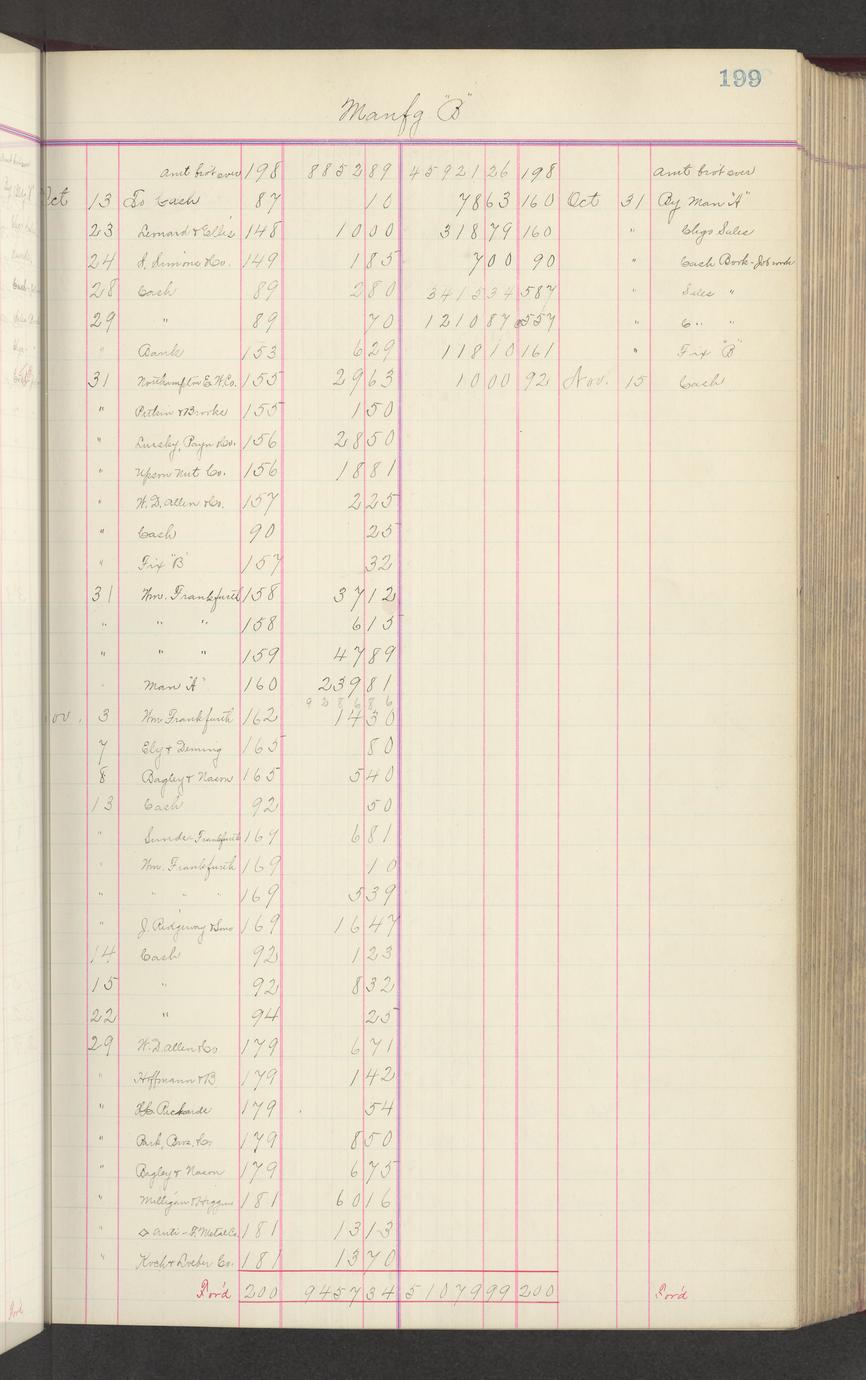 199
Manfg "B"
amt bro't over 198 8852 89 45921 26 198 amt bro't over
Oct 13 To Cash 87 10 78 63 160 Oct 31 By Man "A"
23 Leonard & Ellis 148 10 00 318 79 160 " Chgo Sales
24 & Co. 149 1 85 7 00 90 " Cash Book - Job work
28 Cash 89 2 80 3415 34 587 " Sales "
29 " 89 70 1210 87 557 " C " "
" Bank 153 6 29 118 10 161 " Fix "B"
31 Northampton E.W. Co. 155 29 63 10 00 92 Nov. 15 Cash
" Pitkin & Brooks 155 1 50
" Payn & Co. 156 28 50
" Upson Nut Co. 156 18 81
" W.D. Allen & Co. 157 2 25
" Cash 90 25
" Fix "B" 157 32
31 Wm. Frankfurth 158 37 12
" " " 158 6 15
" " " 159 47 89
" Man "A" 160 239 81
9286 86
Nov. 3 Wm. Frankfurth 162 14 30
7 Ely & Deming 165 80
8 Bagley & Nason 165 5 40
13 Cash 92 50
" Frankfurth 167 6 81
" Wm. Frankfurth 169 10
" " " " 169 5 39
" J. Ridgeway & Sons 169 16 47
14 Cash 92 1 23
15 " 92 8 32
22 " 94 25
29 W.D. Allen & Co 179 6 71
" Hoffmann & B 179 1 42
" Richards 179 54
" Park, Bros, & Co 179 8 50
" Bagley & Nason 179 6 75
" Milligan & Higgins 181 60 16
" Anti-F. Metal Co. 181 13 13
" Koch & Loeber Co. 181 13 70
For'd 200 9457 34 51079 99 200 For'd